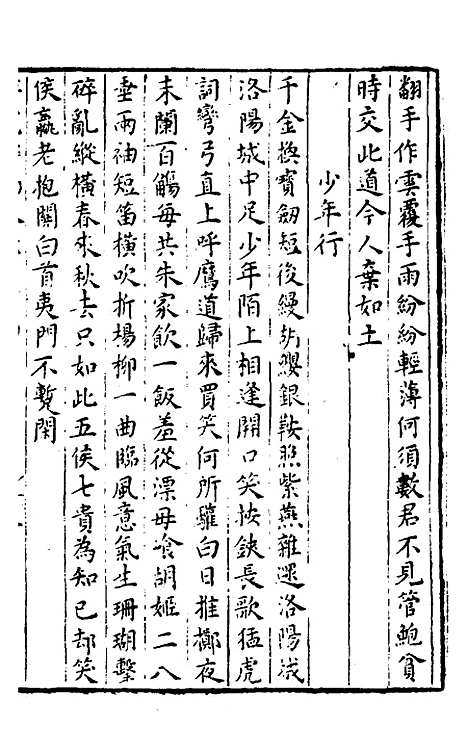 翻手作雲覆手雨紛紛輕薄何須數君不見管鮑貧
時交此道今人棄如土
少年行
千金換寶劒短後縵胡纓銀鞍照紫燕雜遝洛陽城
洛陽城中足少年陌上相逢開口笑按鋏長歌猛虎
詞彎弓直上呼鷹道歸來買笑何所驩白日推擲夜
未闌百觴每共朱家飲一飯羞從漂母飡胡姬二八
垂兩袖短笛橫吹折楊柳一曲臨風意氣生珊瑚擊
碎亂縱橫春來秋去只如此五侯七貴為知己却笑
侯嬴老抱關白首夷門不蹔閑